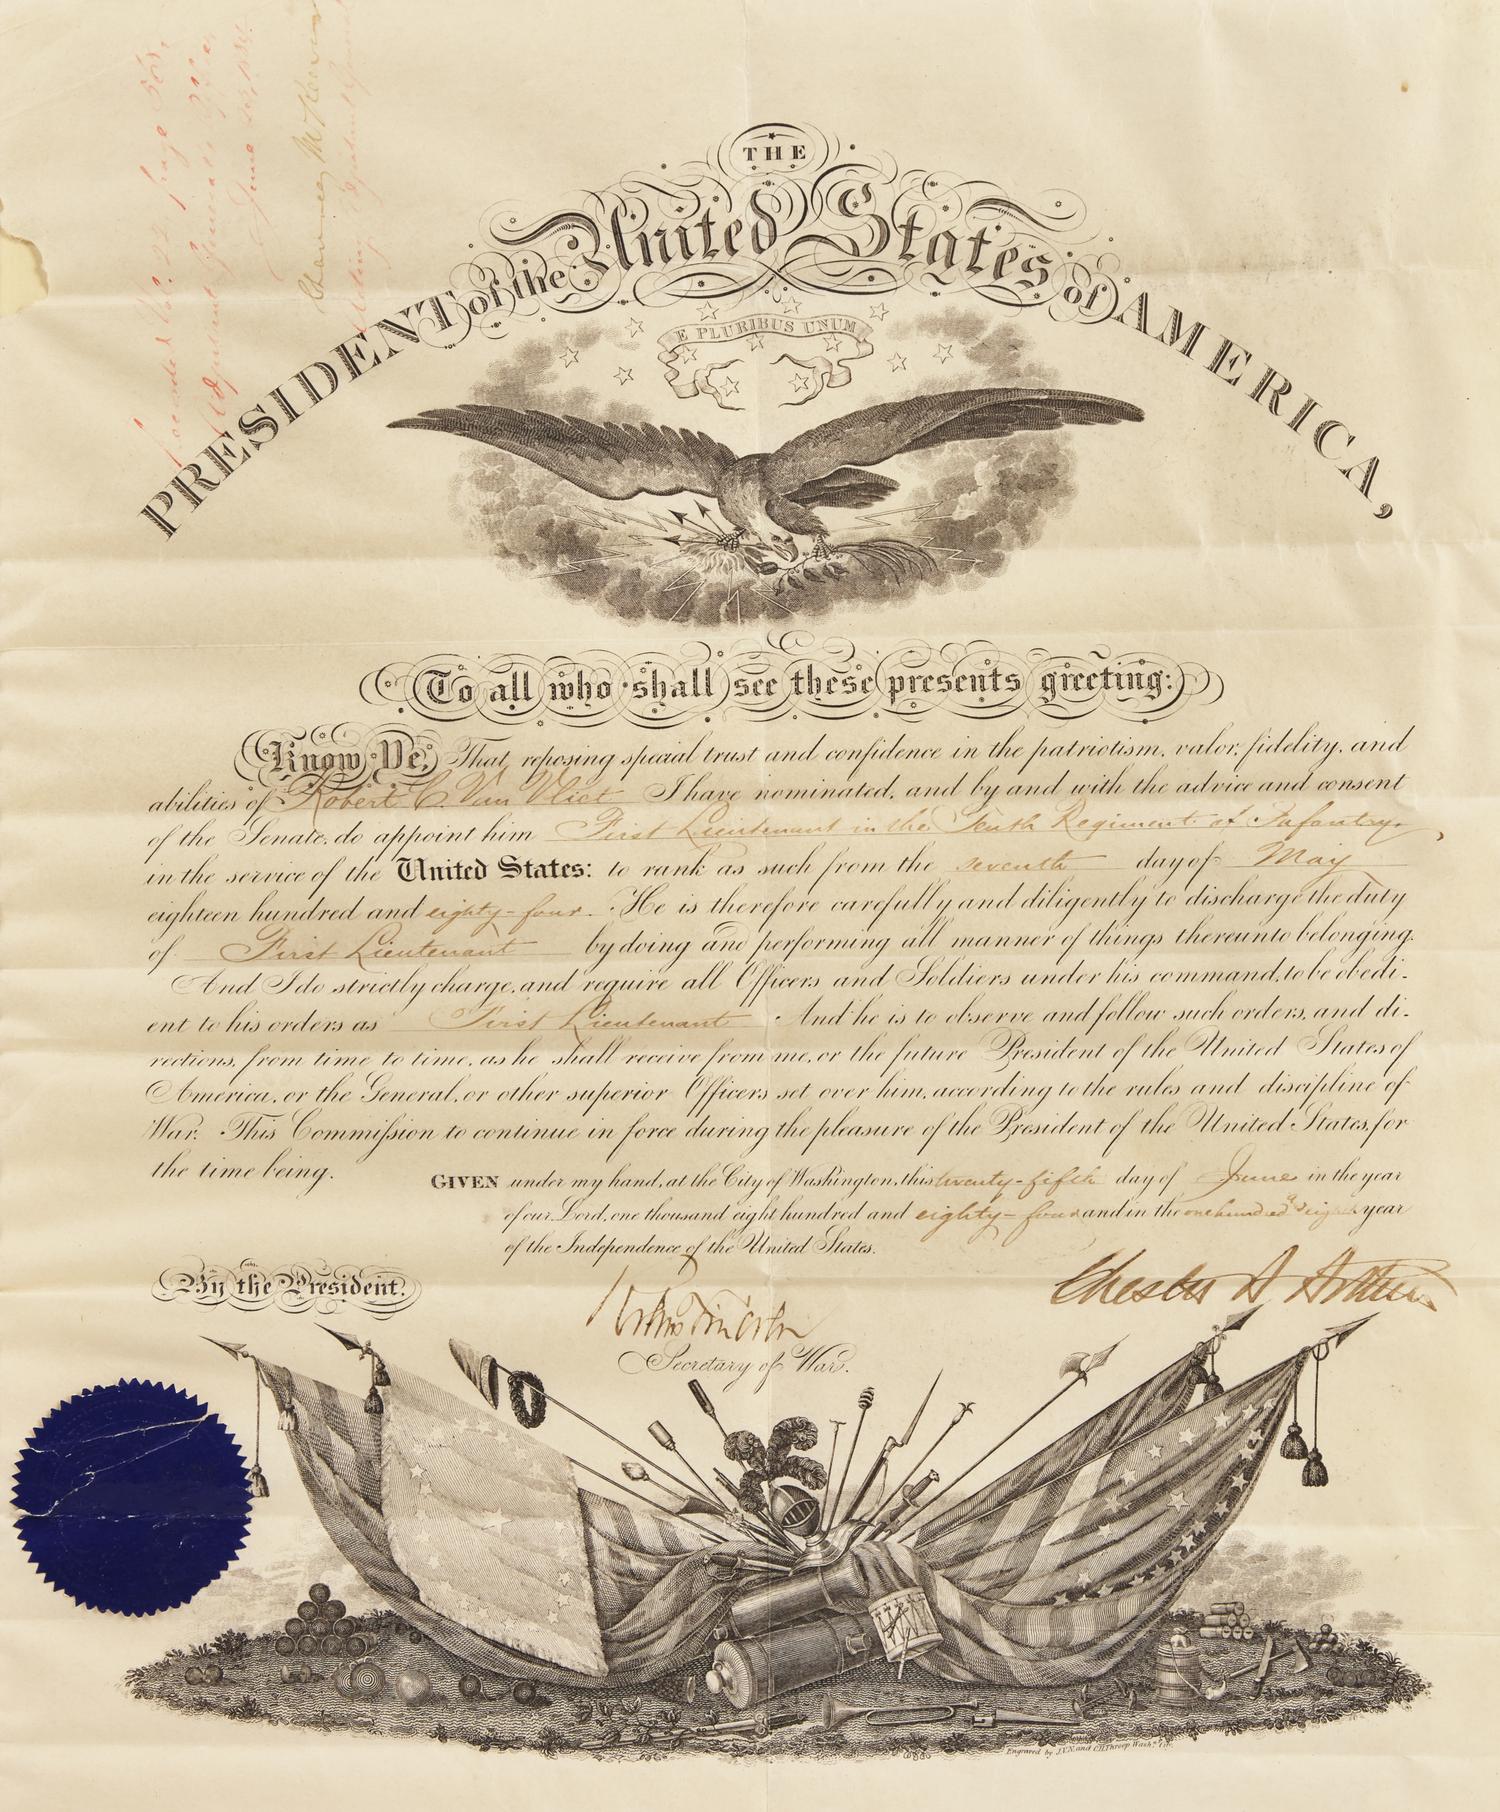 Recorded Vol. 22 page 505,
Adjutant General's Office
June 28, 1884.
Chauncey McKeever
Acting Adjutant General
THE
PRESIDENT of the United States of AMERICA,
E PLURIBUS UNUM
To all who shall see these presents greeting:
Know Ye, That reposing special trust and confidence in the patriotism, valor, fidelity, and
abilities of Robert C. Van Vliet I have nominated, and by and with the advice and consent
of the Senate, do appoint him First Lieutenant in the Tenth Regiment of Infantry,
in the service of the United States: to rank as such from the seventh day of May
eighteen hundred and eighty-four. He is therefore carefully and diligently to discharge the duty
of First Lieutenant by doing and performing all manner of things thereunto belonging.
And I do strictly charge, and require all Officers and Soldiers under his command, to be obedi-
ent to his orders as First Lieutenant And he is to observe and follow such orders, and di-
rections, from time to time, as he shall receive from me, or the future President of the United States of
America, or the General, or other superior Officers set over him, according to the rules and discipline of
War. This Commission to continue in force during the pleasure of the President of the United States, for
the time being.
GIVEN under my hand, at the City of Washington, this twenty-fifth day of June in the year
of our Lord, one thousand eight hundred and eighty-four and in the one hundred & eighth year
of the Independence of the United States.
By the President.
Chester A Arthur
Robert T Lincoln
Secretary of War.
Engraved by J.V.N. and O.H. Throop Wash.n City